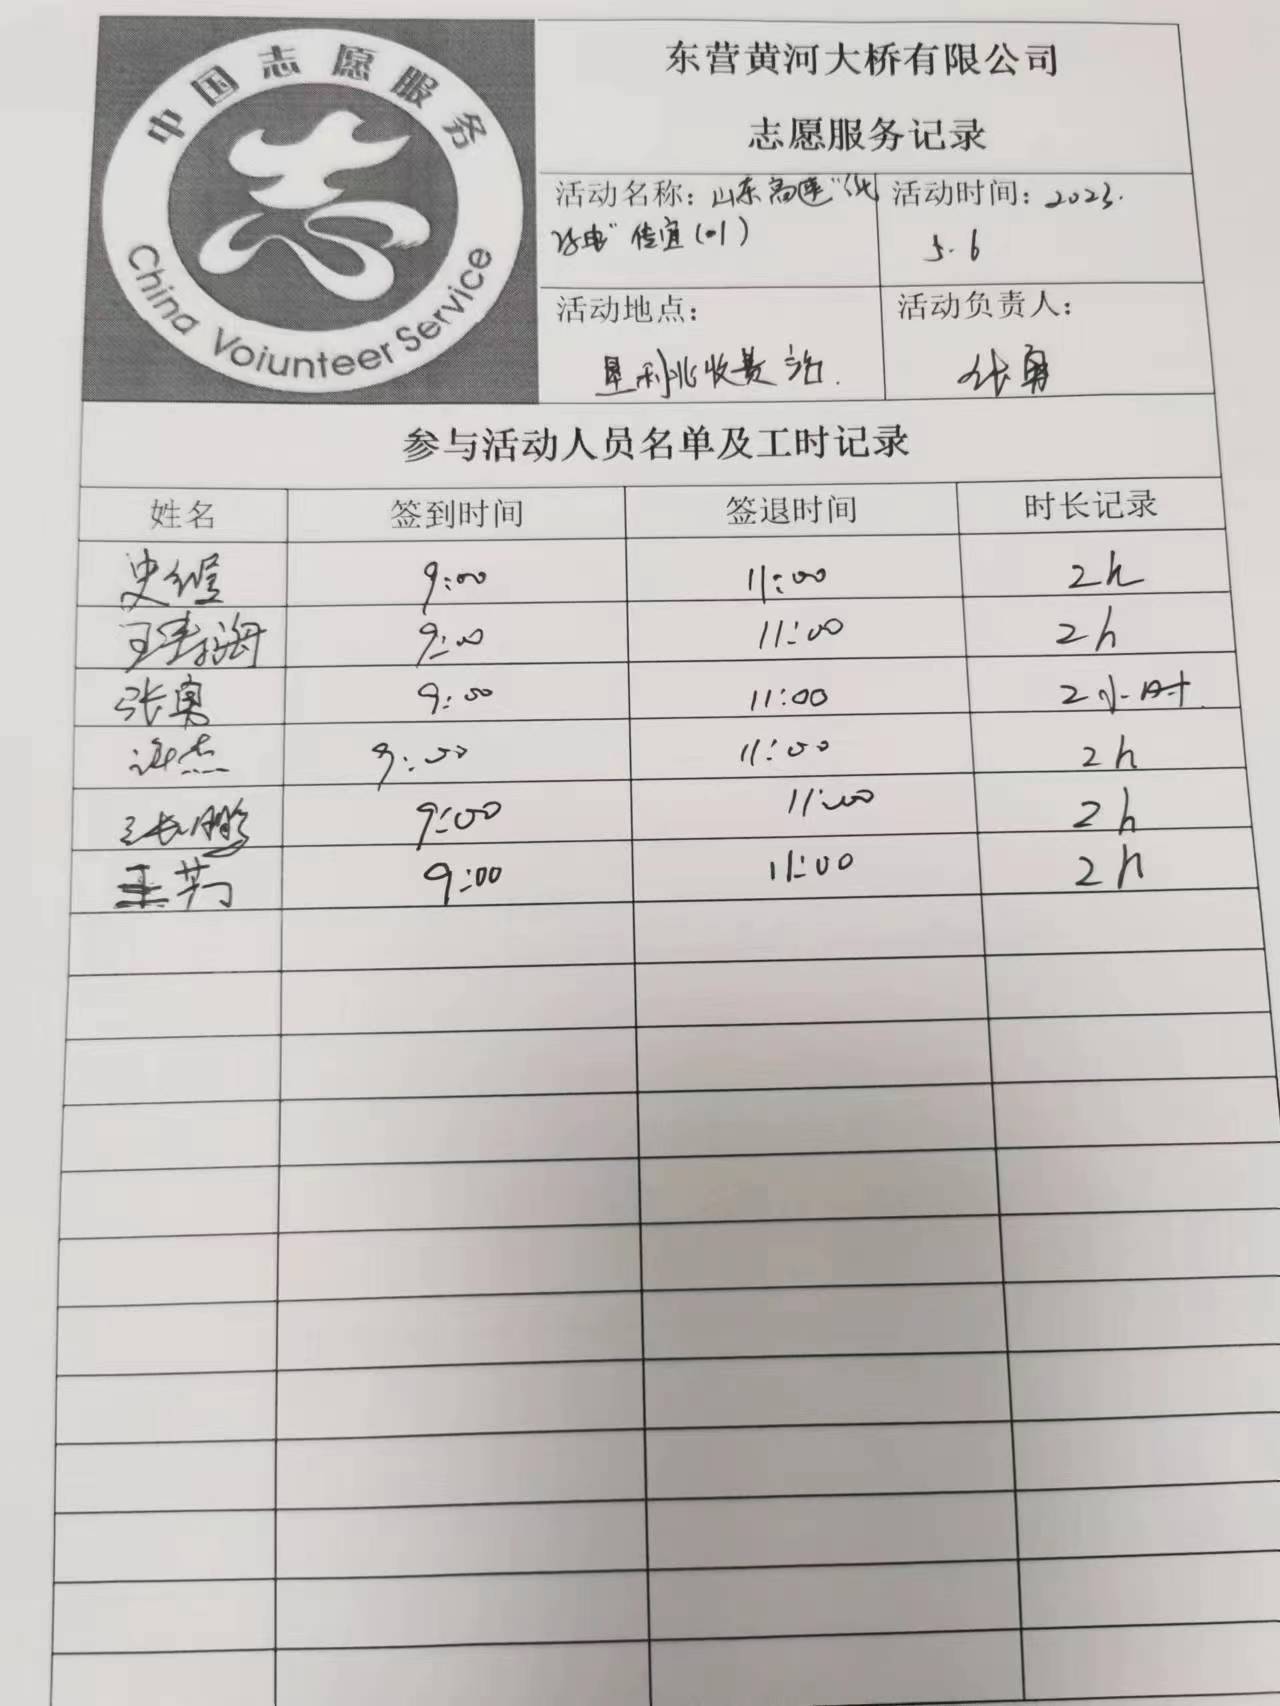 中国志愿服务
China Voiunteer Service
东营黄河大桥有限公司
志愿服务记录
活动名称：山东高速"
宣(01)
活动时间：2023.
5.6
活动地点：
垦利北收费站.
活动负责人：
张勇
参与活动人员名单及工时记录
姓名 签到时间 签退时间 时长记录
史 9:00 11:00 2h
王 9:00 11:00 2h
张勇 9:00 11:00 2小时.
杰 9:00 11:00 2h
张鹏 9:00 11:00 2h
王芳 9:00 11:00 2h